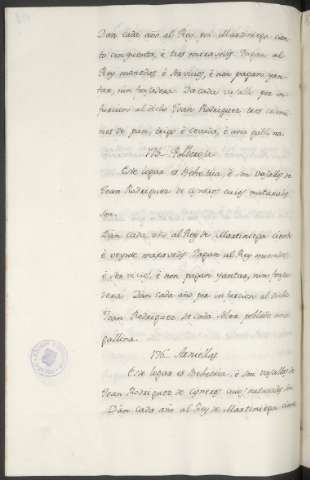 Dan cada año al Rey por Martiniega cien-
to cinquenta, è tres maravedis. Pagan al
Rey monedas è servicios, è non pagan yan-
tar, nin fonsadera. Da cada vasallo por in-
furcion al dicho Joan Rodriguez tres celemi-
nes de pan, trigo è cevada, è una gallina.
175.
Este logar es Behetria, è son vasallos de
Joan Rodriguez de Cisneros cuios naturales
son.
Dan cada año al Rey de Martiniega ciento
è veynte maravedis. Pagan al Rey monedas,
è servicios, è non pagan yantar, nin fonsa-
dera. Dan cada año por infurcion al dicho
Joan Rodriguez de cada solar poblado una
gallina.
176.
Este logar es Behetria, è son vasallos de
Joan Rodriguez de Cisneros cuios naturales son.
Dan cada año al Rey de Martiniega ciento